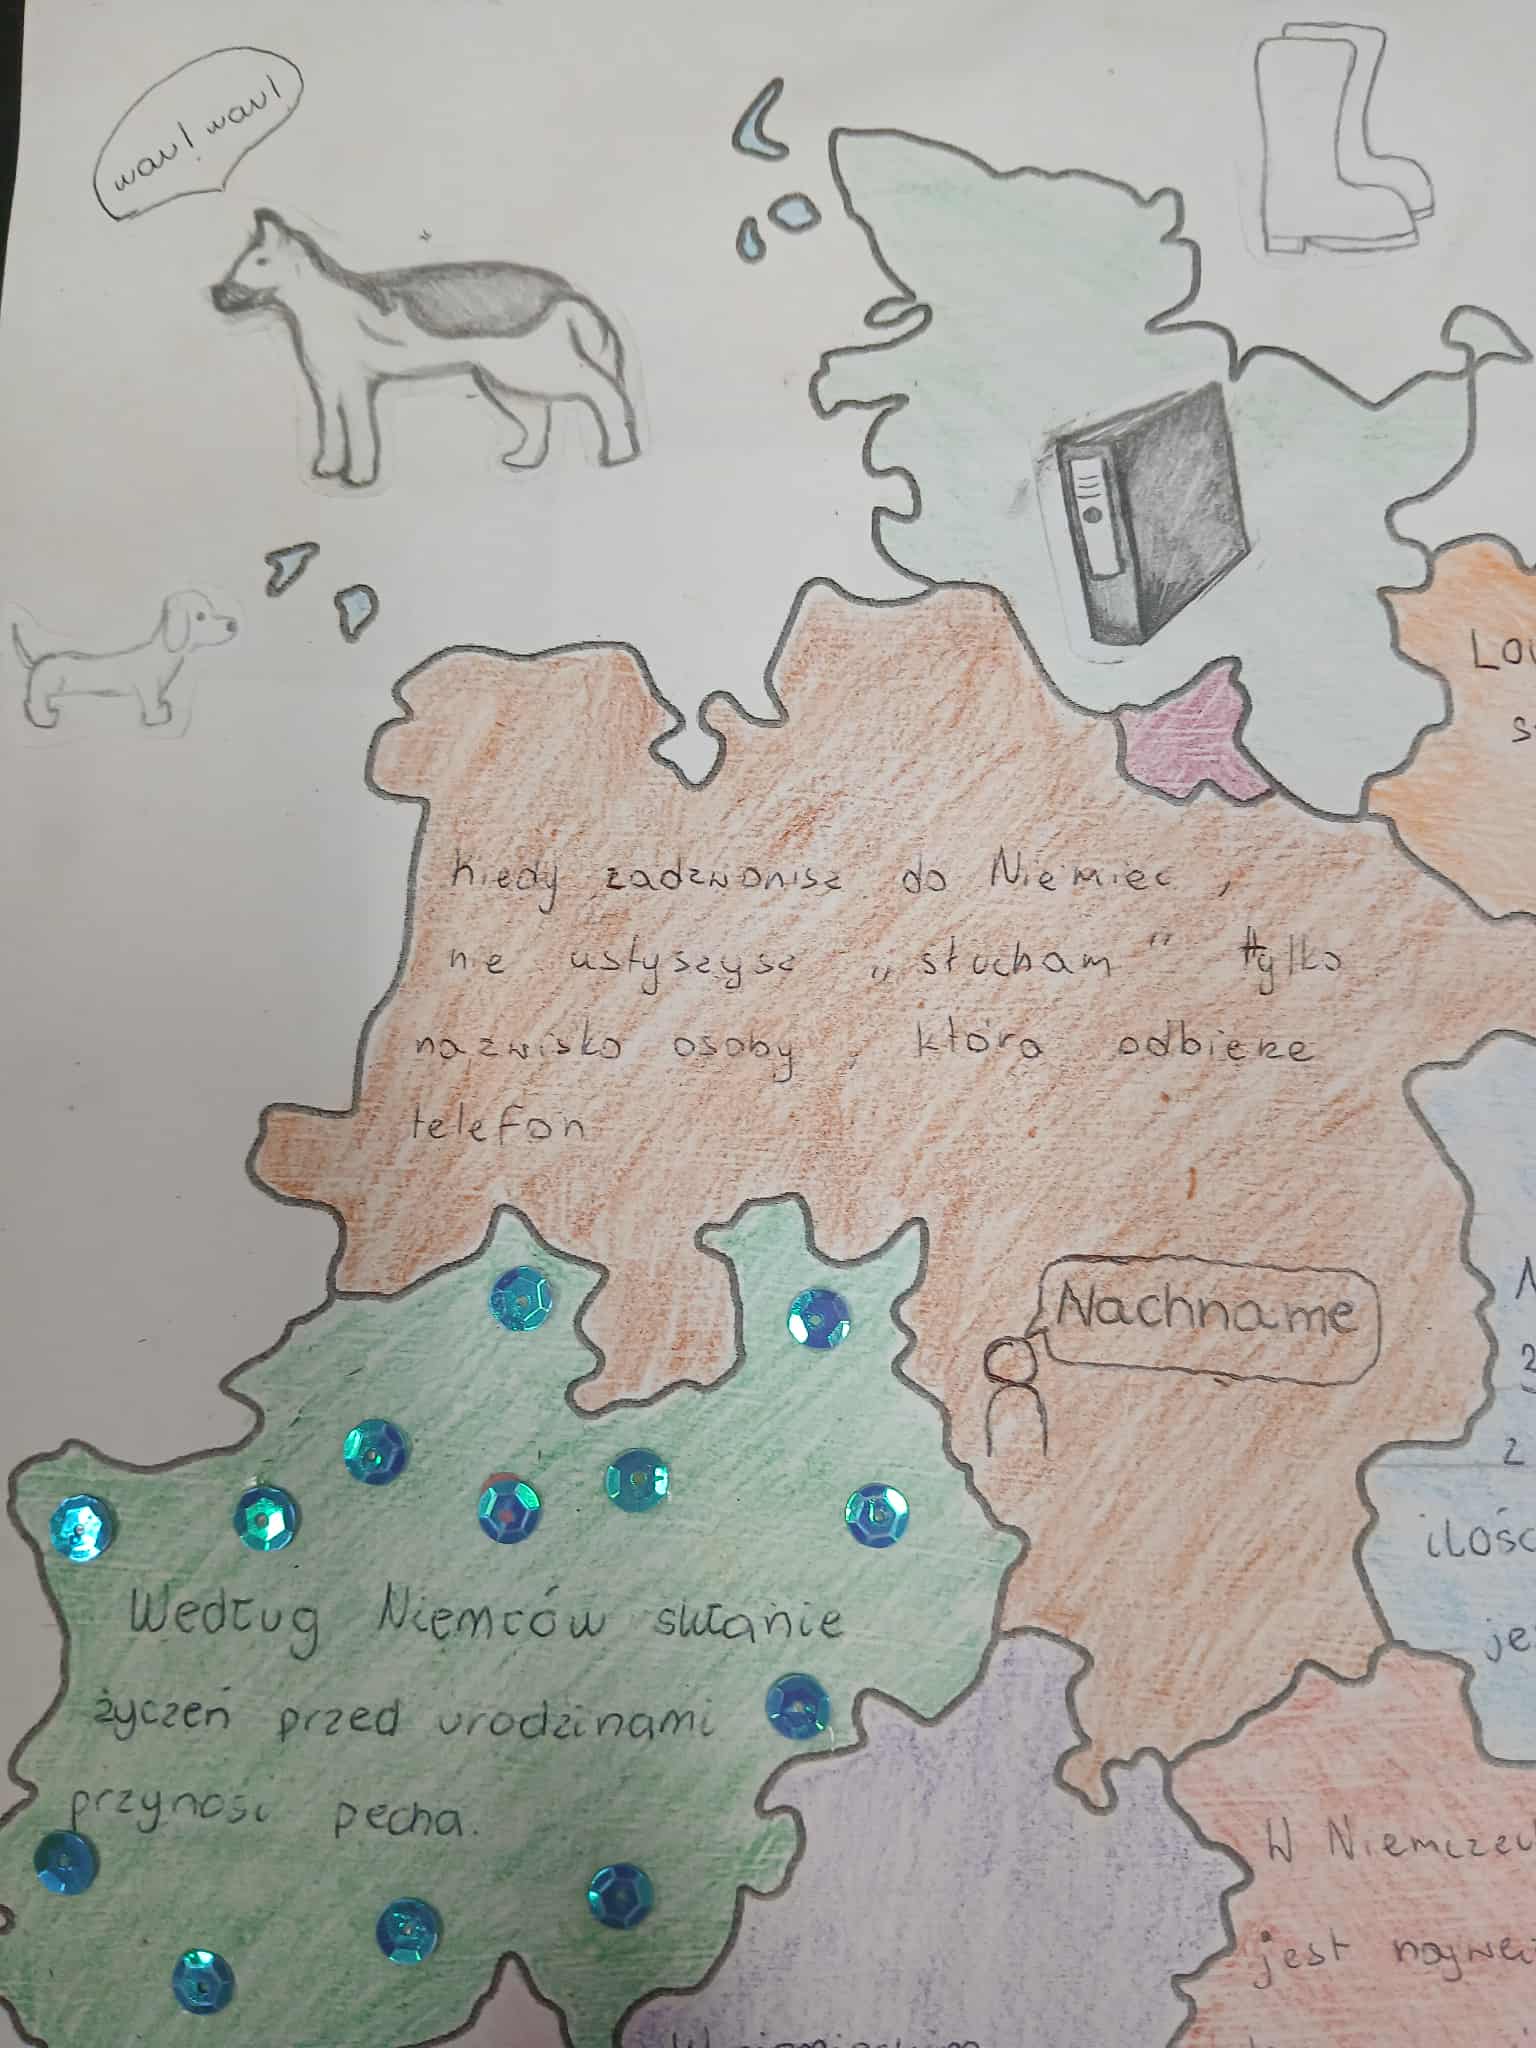 wau! wau!
kiedy zadzwonisz do Niemiec,
nie usłyszysz „słucham" tylko
nazwisko osoby, która odbierze
telefon
Nachname
Według Niemców składanie
życzeń przed urodzinami
przynosi pecha.
ilość
W Niemczech
jest najwię
W niemieckim